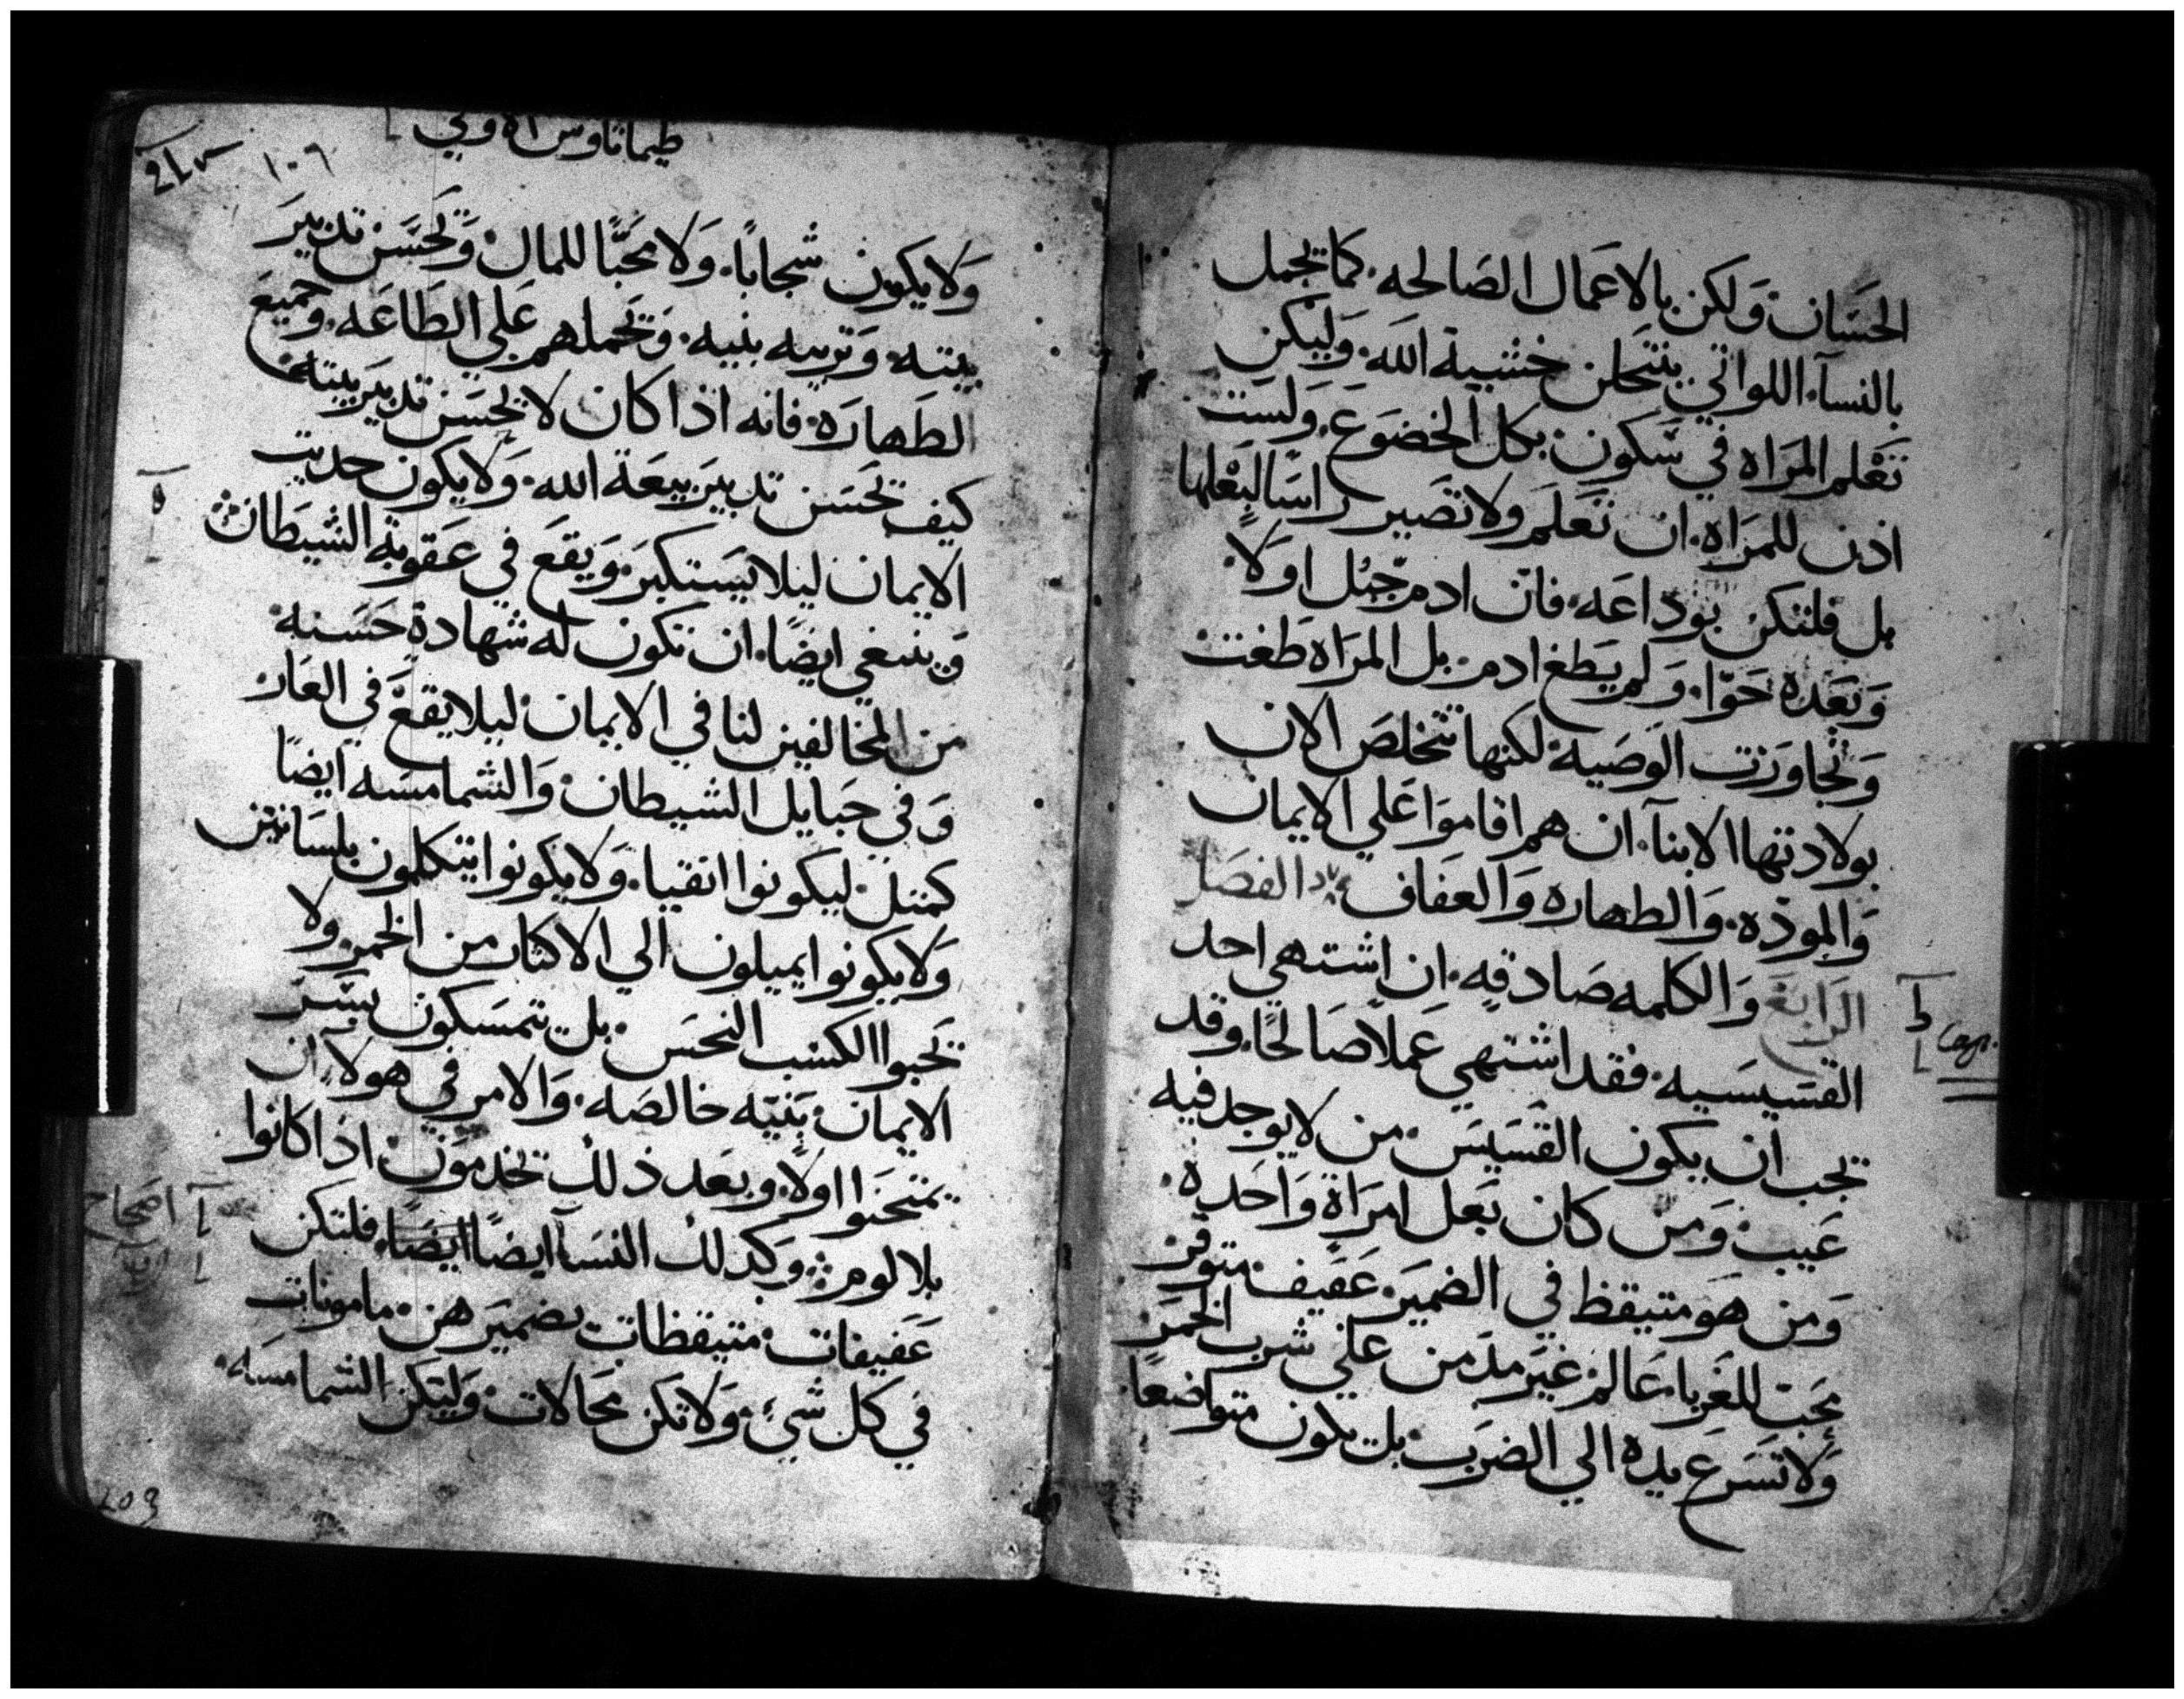 الحسان ولكن بالاعمال الصالحه. كما تجمل
بالنسآء اللواتي ينتحلن خشية الله. وليكن
تعلم المراه في سكون بكل الخضوع. ولست
اذن للمراه ان تعلم ولا تصير راسا لبعلها
بل فلتكن بوداعه. فان ادم جبل اولا.
وبعده حوا. ولم يطغ ادم. بل المراه طغت
وتجاوزت الوصية. لكنها تتخلص الان
بولادتها الابنآء ان هم اقاموا علي الايمان
والموده. والطهاره والعفاف الفصل
الرابع والكلمه صادقه. ان اشتهي احد
القسيسيه. فقد اشتهي عملا صالحا. وقد
يجب ان يكون القسيس. من لا يوجد فيه
عيب. ومن كان بعل امراة واحده.
ومن هو متيقظ في الضمير. عفيف. متوقر
يحب للغربا. عالم. غير مدمن علي شرب الخمر
ولا تسرع يده الي الضرب. بل يكون متواضعا.
Cap.
طيماتاوس الاولي
١٠٦
ولا يكون شجابا. ولا محبا للمال. ويحسن تدبير
بيته. وتربيه بنيه. ويحملهم علي الطاعه. وجميع
الطهاره. فانه اذا كان لا يحسن تدبير بيته.
كيف يحسن تدبير بيعة الله. ولا يكون حديث
الايمان ليلا يستكبر. ويقع في عقوبة الشيطان
وينبغي ايضا. ان تكون له شهادة حسنه
من المخالفين لنا في الايمان. ليلا يقع في العار
وفي حبايل الشيطان. والشمامسه ايضا
كمثل. ليكونوا انقيا. ولا يكونوا يتكلمون بلسانين
ولا يكونوا يميلون الي الاكثار من الخمر. ولا
يحبوا الكسب النجس. بل يتمسكون بسر
الايمان. بنيه خالصه. والامر في هولاء. ان
يمتحنوا اولا. وبعد ذلك يخدمون اذا كانوا
بلا لوم. وكذلك النسآ ايضا ايضا. فلتكن
عفيفات. متيقظات بضميرهن. مامونات
في كل شيء. ولا تكن محالات. وليكن الشمامسه.
اصحاح
103